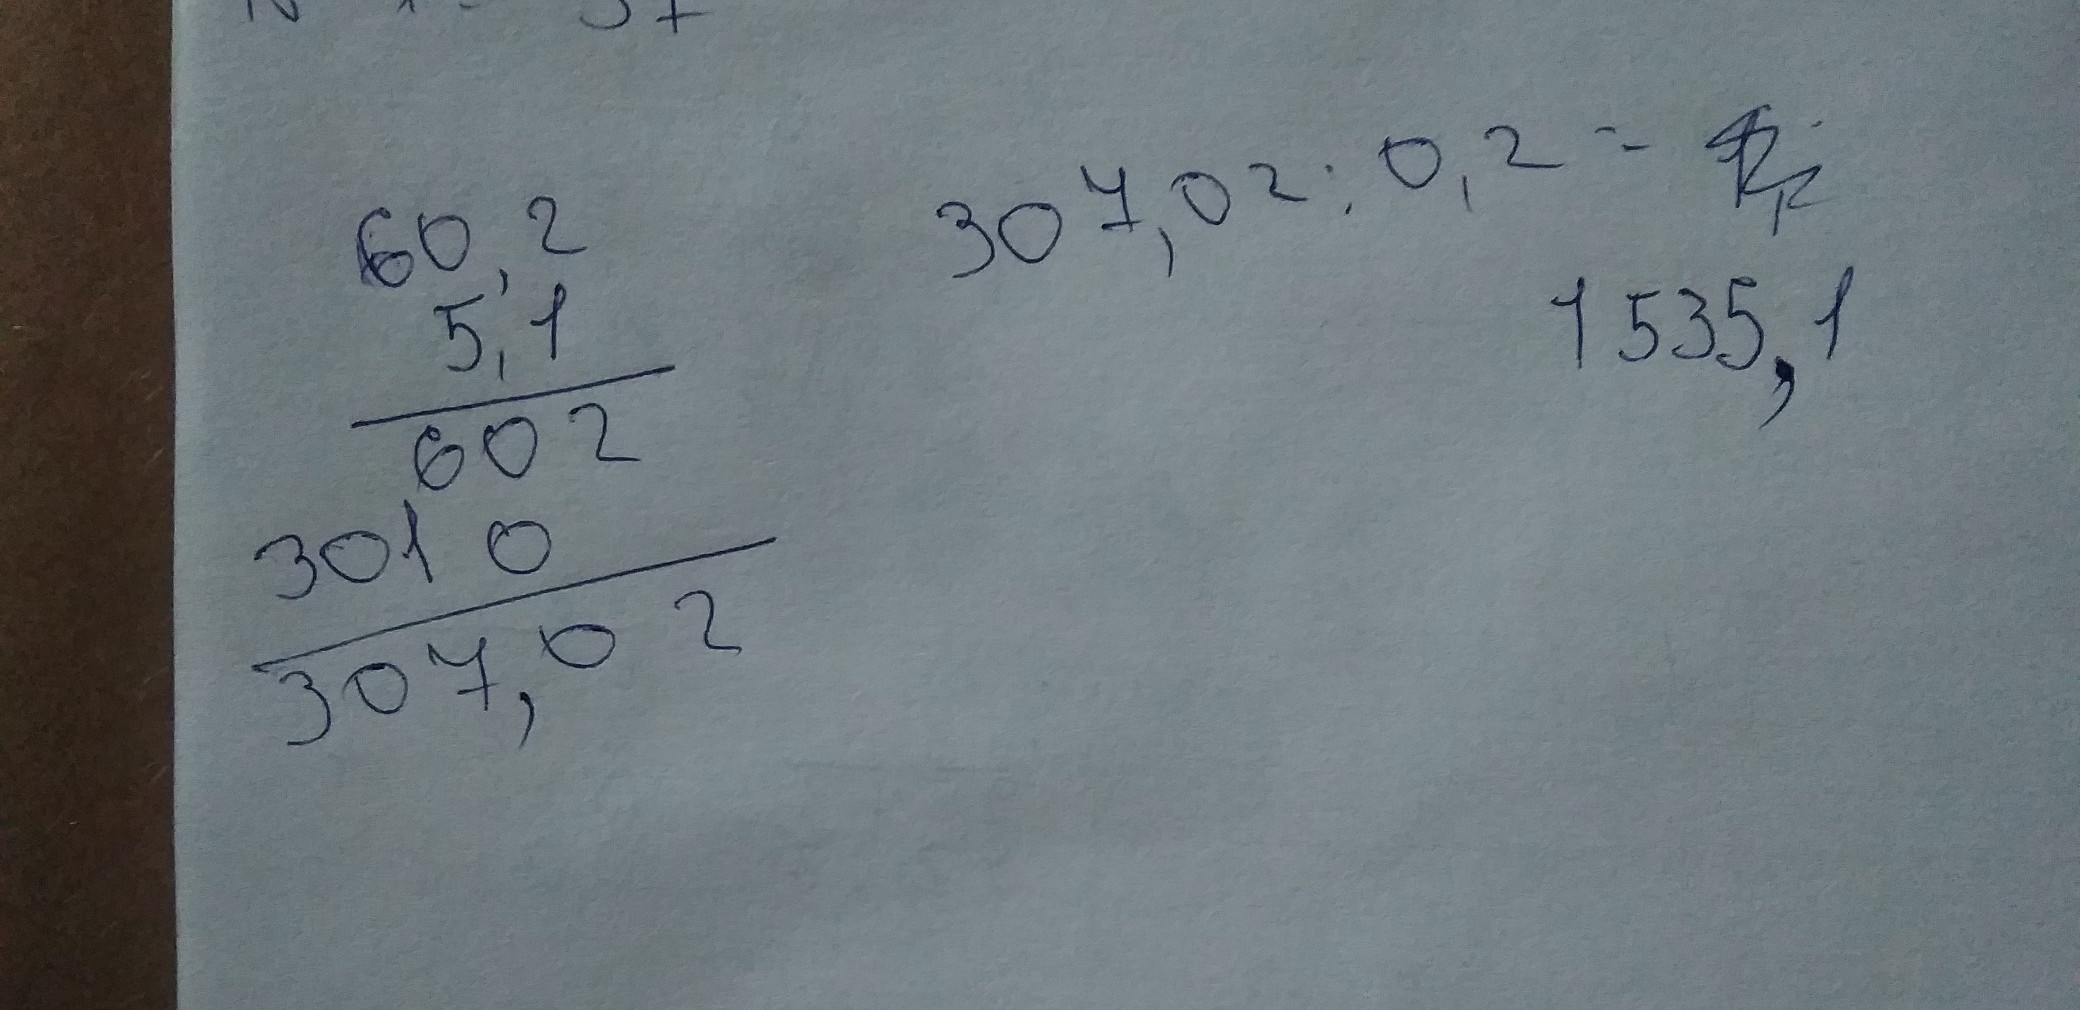 60,2
5,1
602
3010
307,02
307,02:0,2=
1535,1